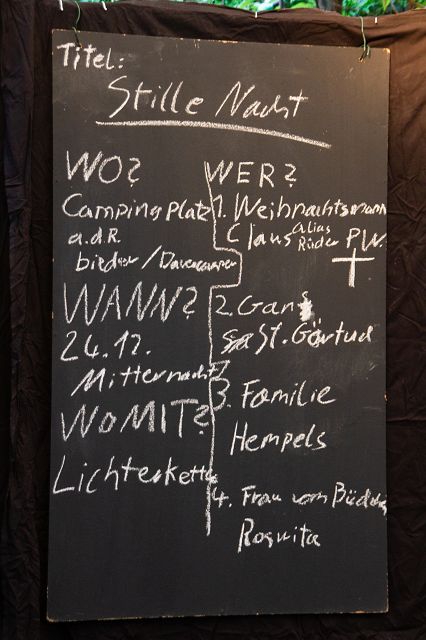 Titel:
Stille Nacht
WO?
Camping Platz
a.d.R.
bieder/Dauercamper
WANN?
24.12.
Mitternacht
WOMIT?
Lichterkette
WER?
1. Weihnachtsmann
Claus alias
P.W.
2. Gans
St. Görtud
3. Familie
Hempels
4. Frau vom
Roswita